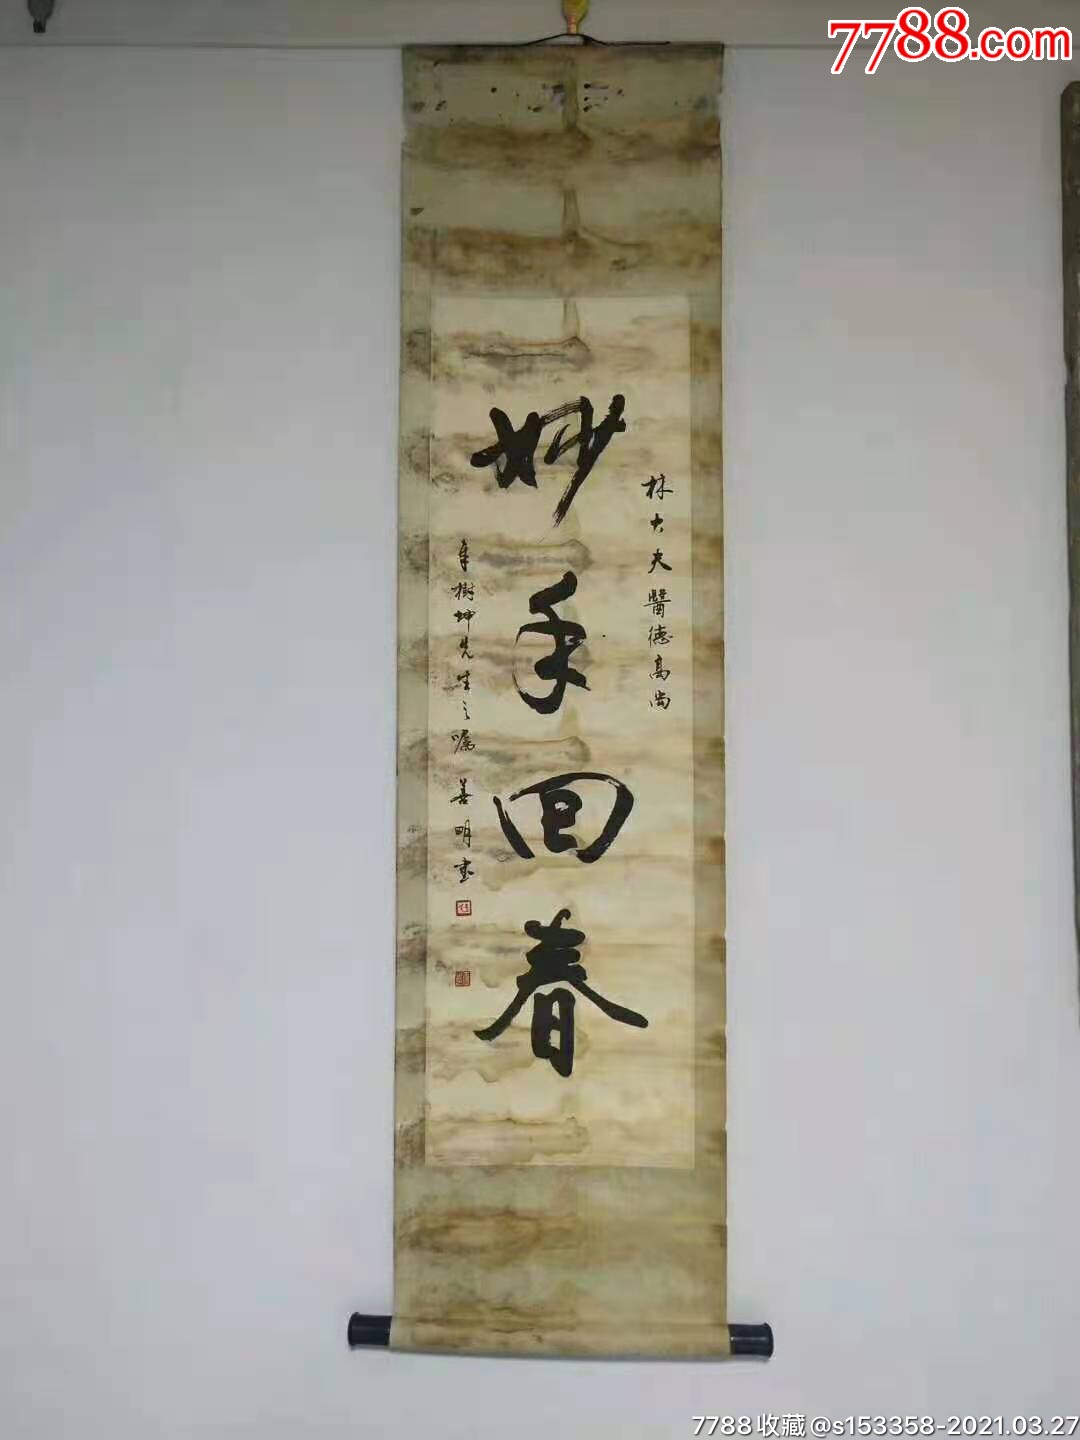 7788.com
林大夫醫德高尚
妙手回春
樹坤先生之嘱 善明书
7788收藏@s153358-2021.03.27